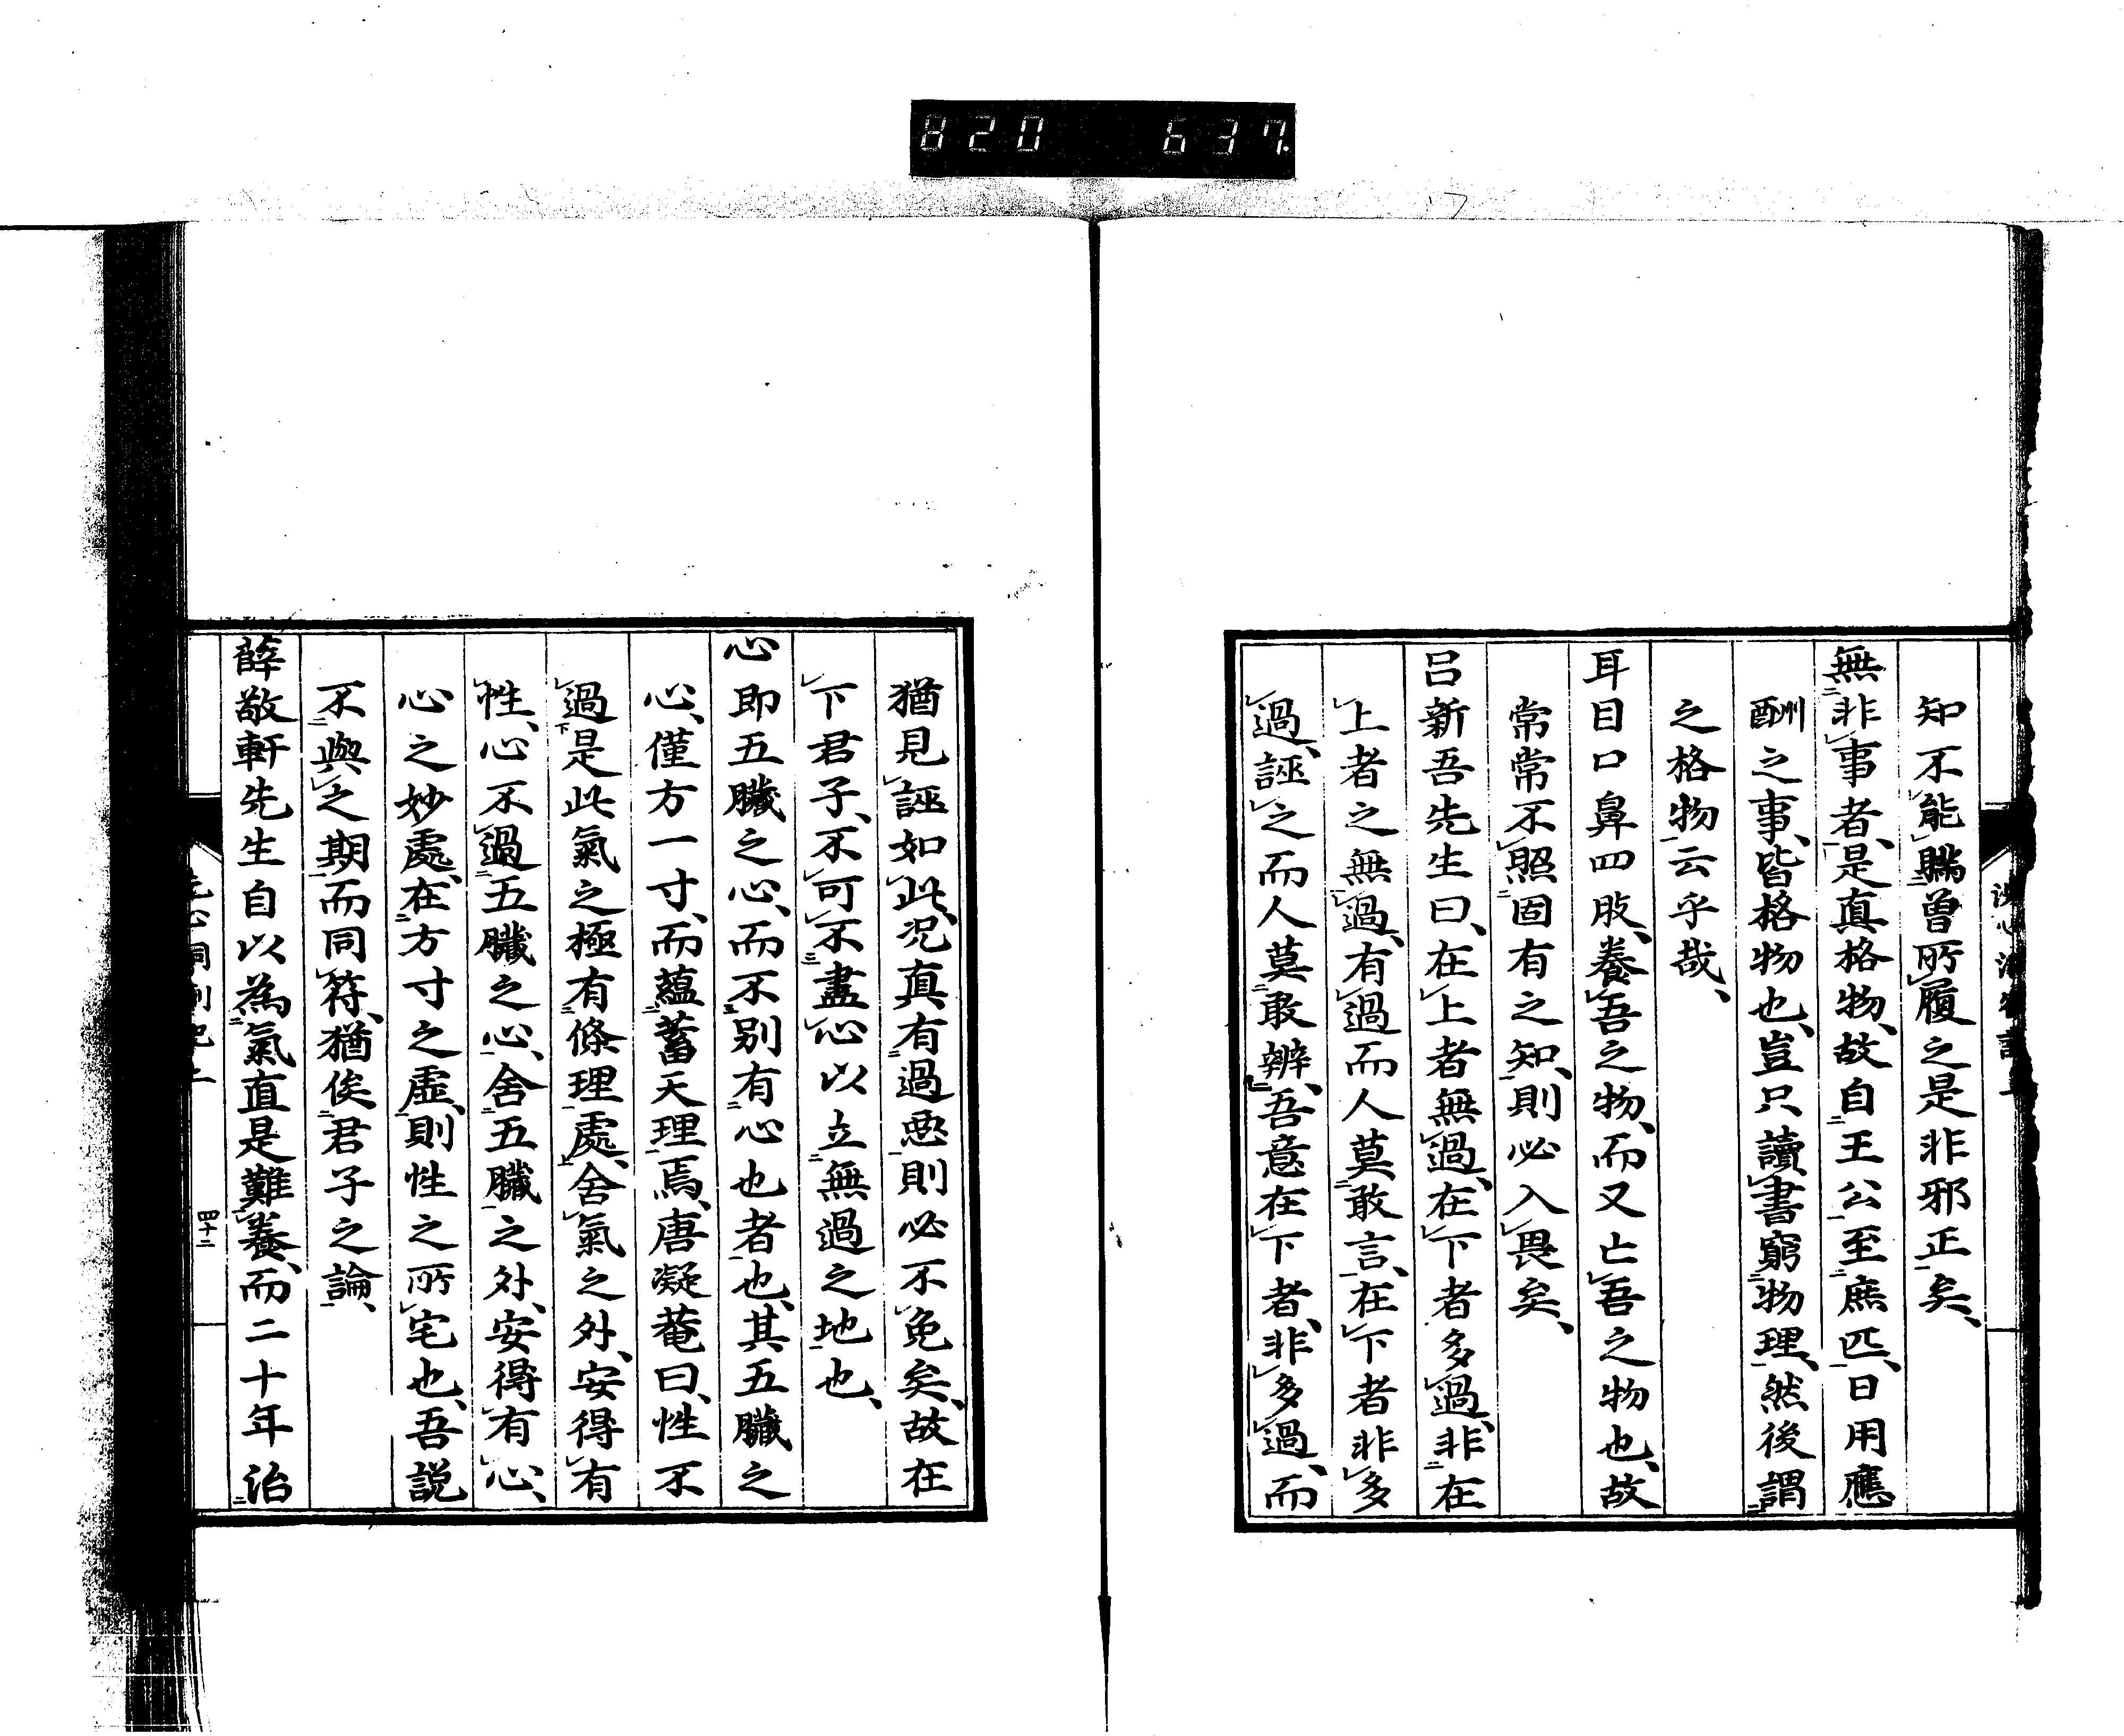 820 637.
知不能瞞曾所履之是非邪正矣、
無非事者、是真格物、故自王公至庶匹、日用應
酬之事、皆格物也、豈只讀書窮物理、然後謂
之格物云乎哉、
耳目口鼻四肢、養吾之物、而又亡吾之物也、故
常常不照固有之知、則必入畏矣、
呂新吾先生曰、在上者無過、在下者多過、非在
上者之無過、有過而人莫敢言、在下者非多
過、誣之而人莫敢辨、吾意在下者、非多過、而
猶見誣如此、況真有過惡則必不免矣、故在
下君子、不可不盡心以立無過之地也、
心即五臟之心、而不别有心也者也、其五臟之
心、僅方一寸、而蘊蓄天理焉、唐凝菴曰、性不
過是此氣之極有條理處、舍氣之外、安得有
性、心不過五臟之心、舍五臟之外、安得有心、
心之妙處、在方寸之虛、則性之所宅也、吾説
不與之期而同符、猶俟君子之論、
薛敬軒先生自以為氣直是難養、而二十年治
四十二